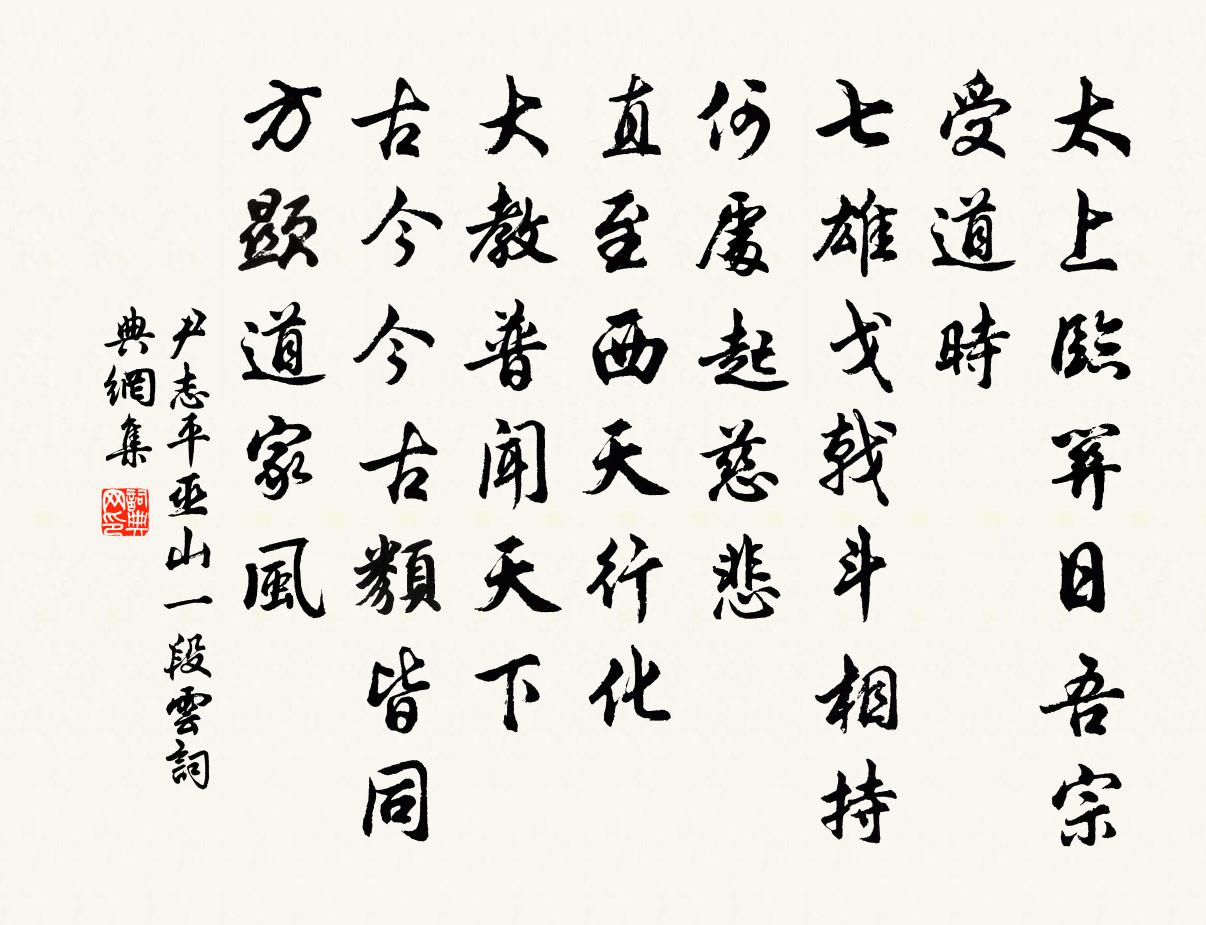 太上臨關日吾宗
受道時
七雄戈戟斗相持
何處起慈悲
直至西天行化
大教普聞天下
古今今古類皆同
方顯道家風
尹志平巫山一段雲詞
典網集
詞典
网印